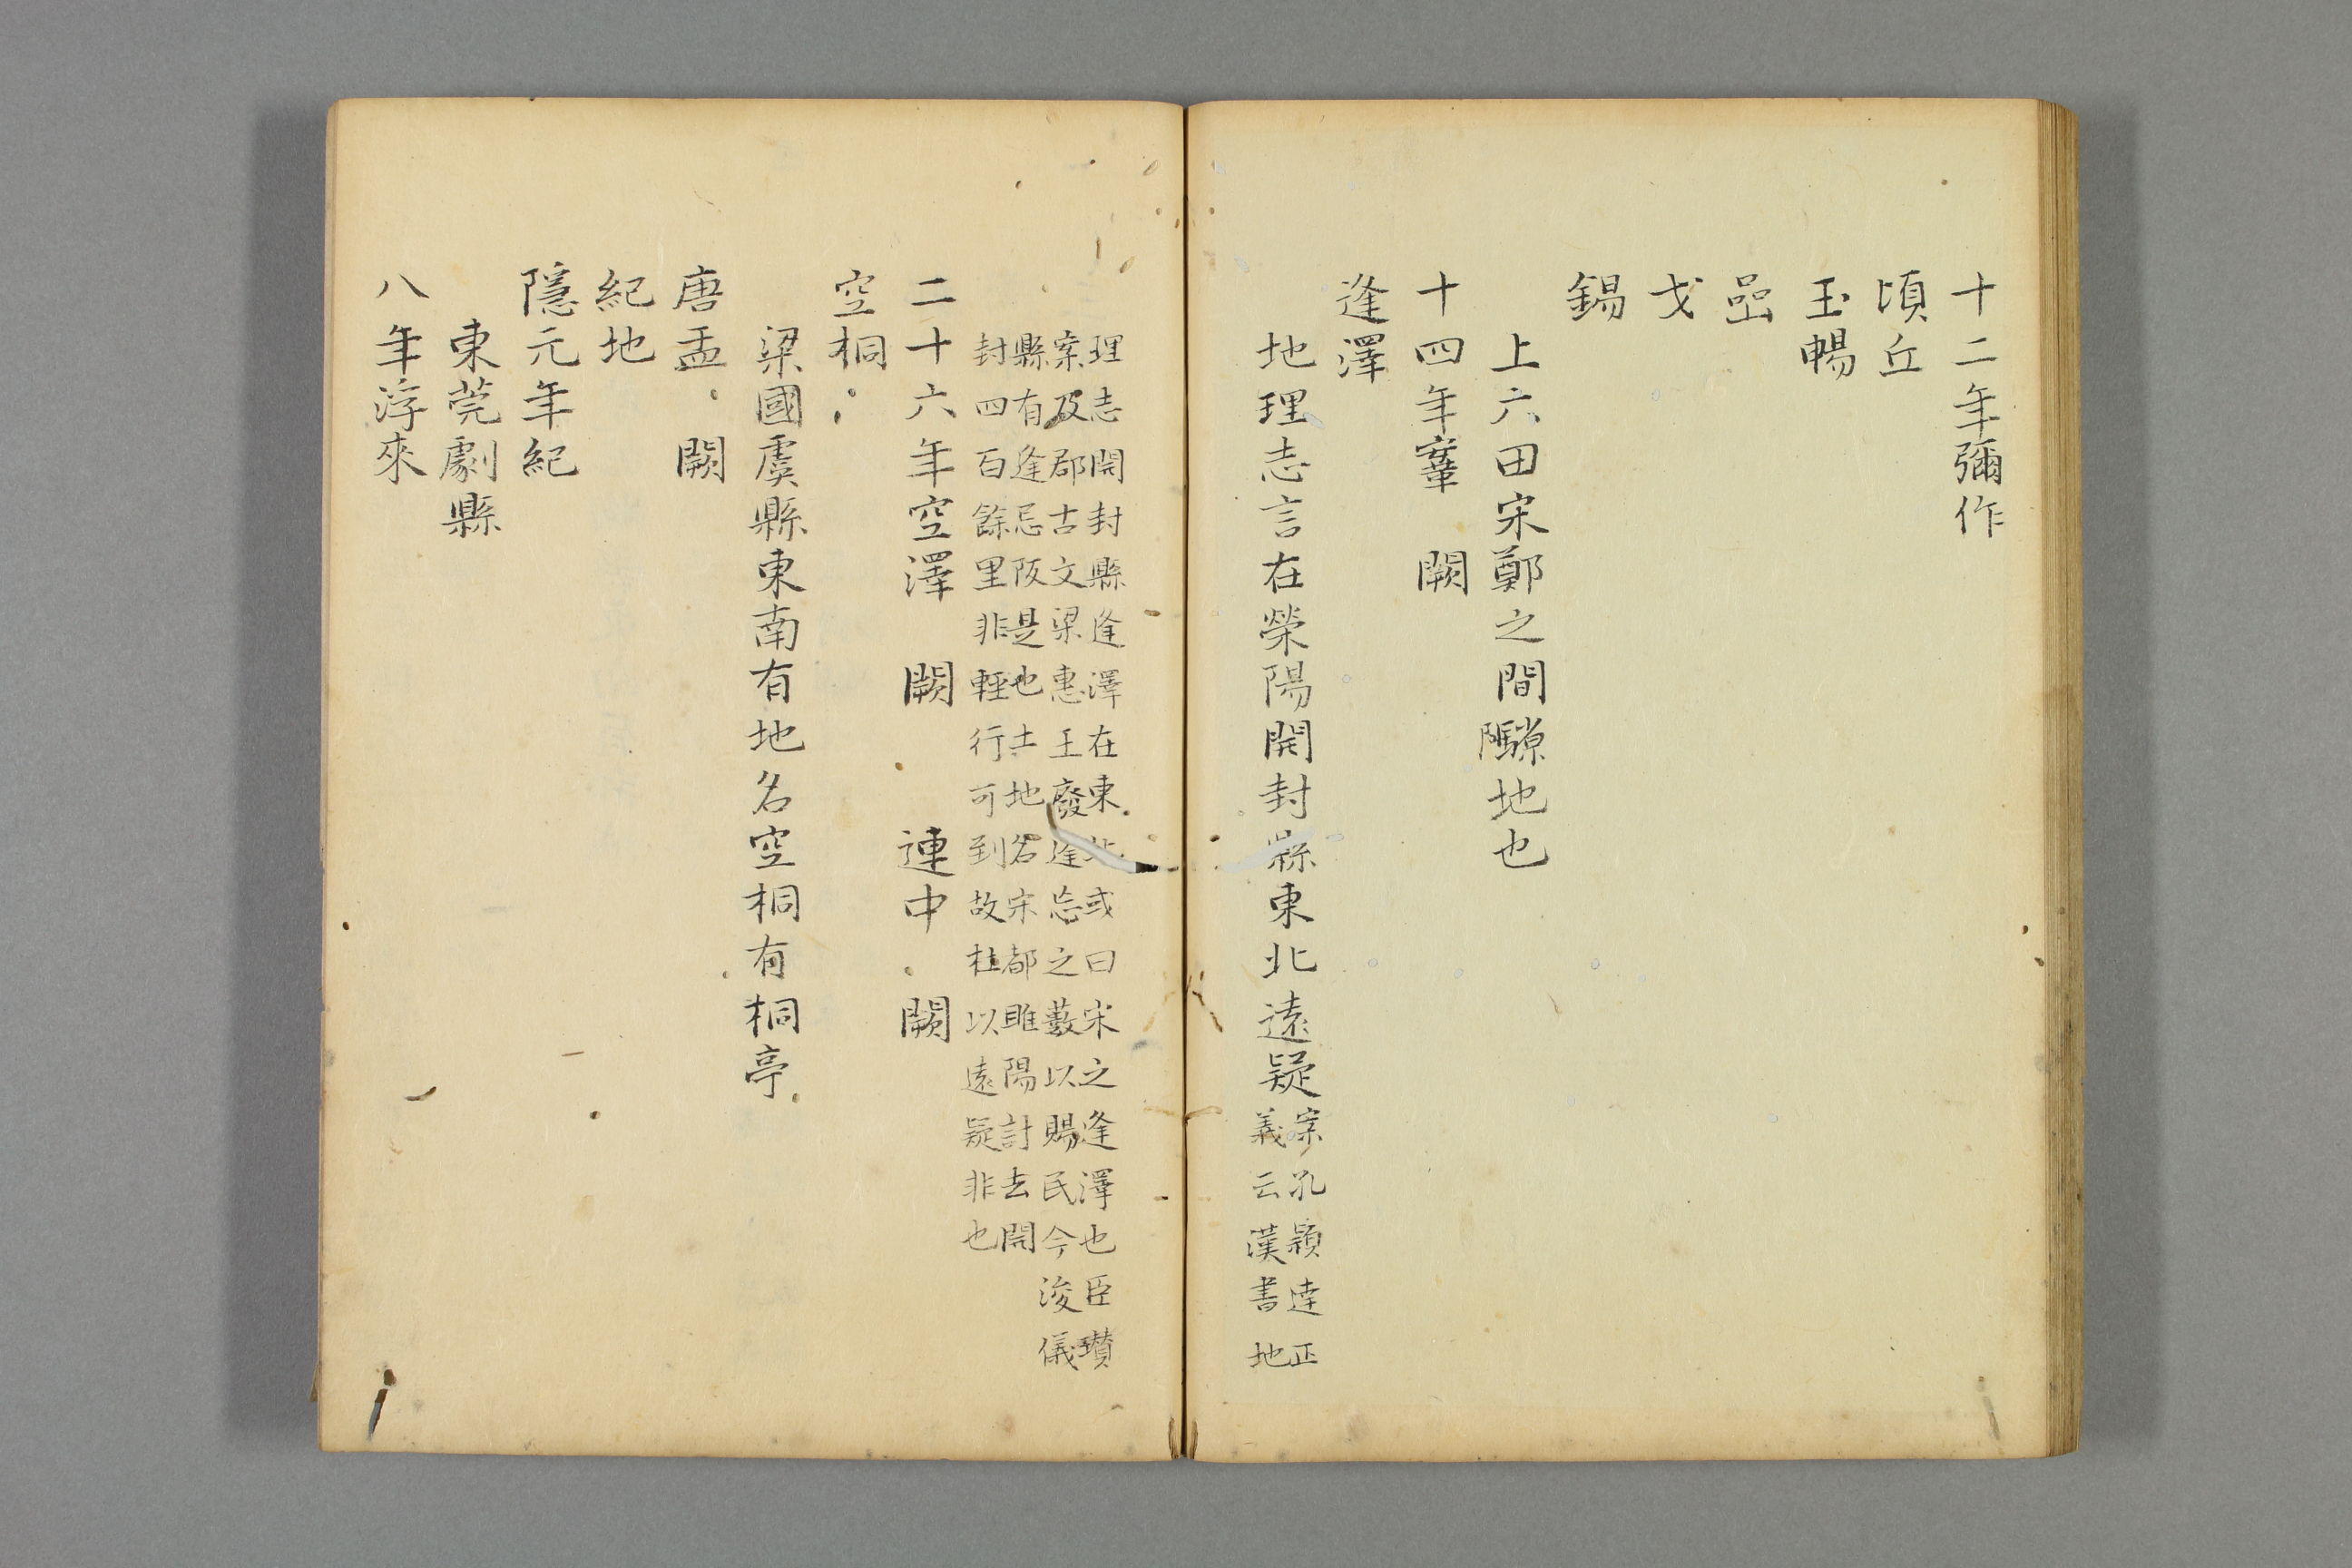 十二年彌作
頃丘
玉暢
嵒
戈
錫
上六田宋鄭之間隟地也
十四年䡣 闕
逢澤
地理志言在滎陽開封縣東北遠疑
案孔穎達正
義云漢書地
理志開封縣逢澤在東北或曰宋之逢澤也臣瓚
案汲郡古文梁惠王廢逢忌之藪以賜民今浚儀
縣有逢忌陂是也土地名宋都睢陽計去開
封四百餘里非輕行可到故杜以遠疑非也
二十六年空澤 闕 連中 闕
空桐
梁國虞縣東南有地名空桐有桐亭
唐盂 闕
紀地
隱元年紀
東莞劇縣
八年浮來